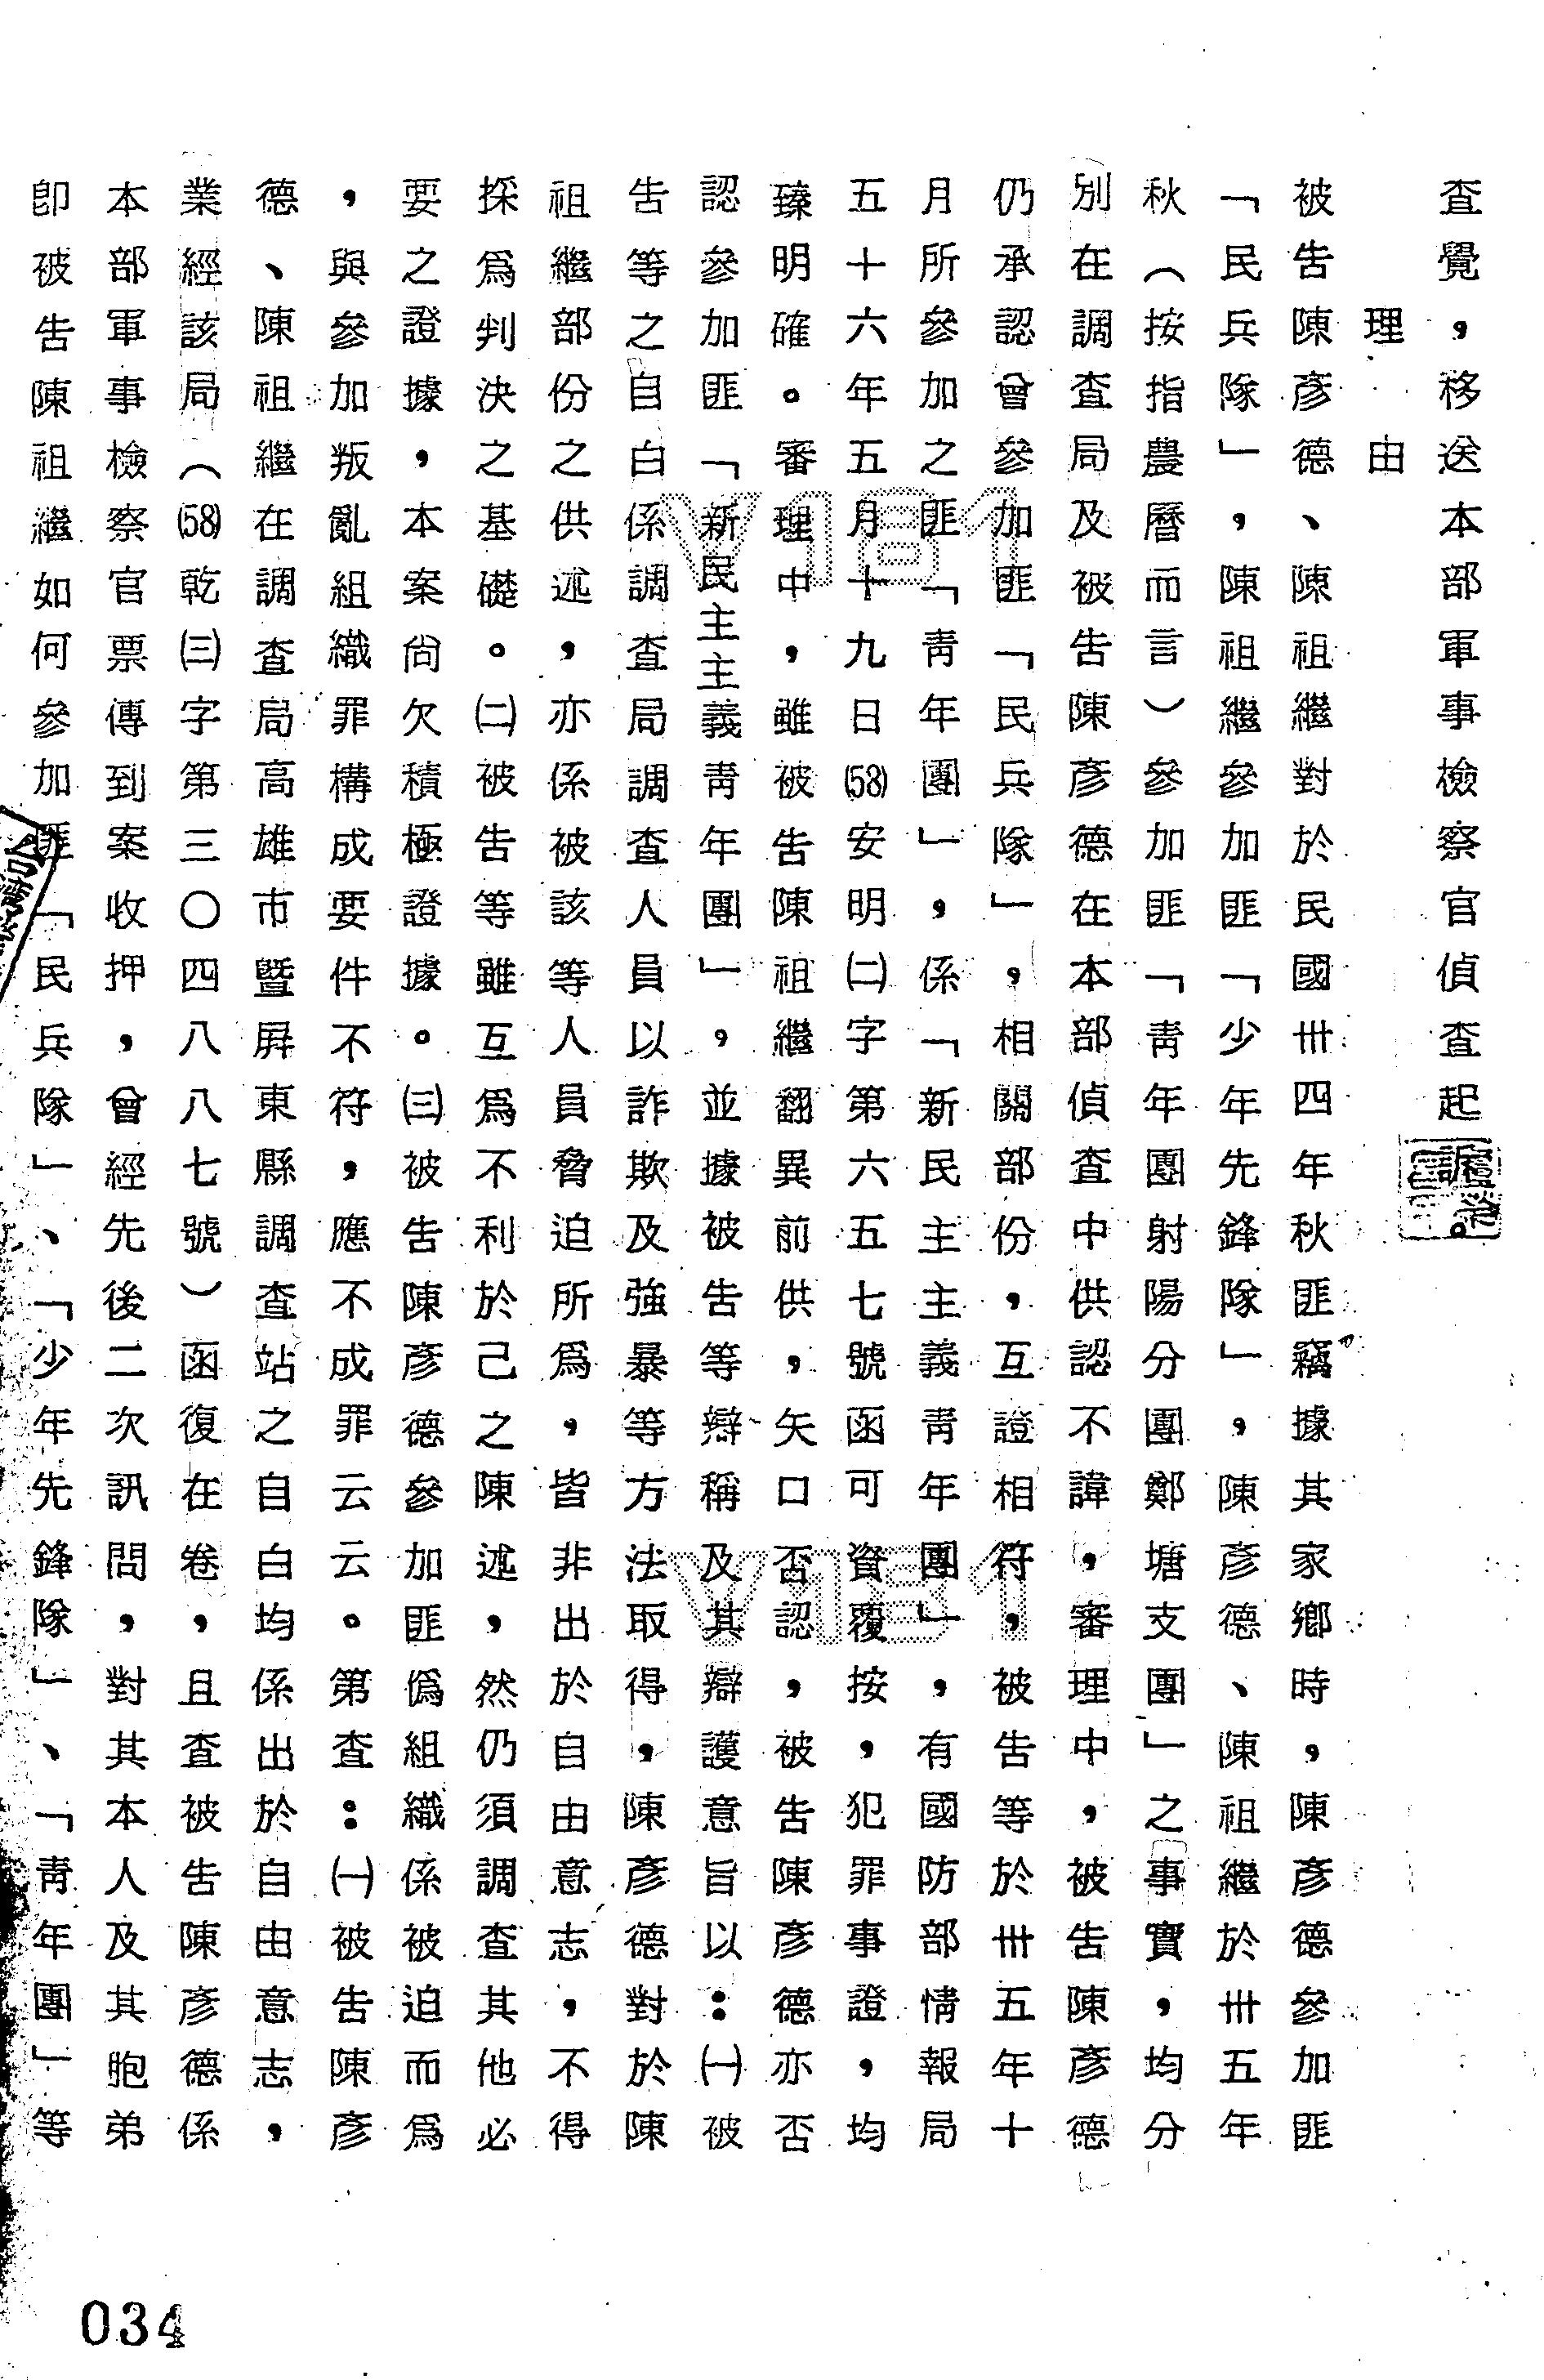 查覺，移送本部軍事檢察官偵查起訴。
理由
被告陳彥德、陳祖繼對於民國卅四年秋匪竊據其家鄉時，陳彥德參加匪
「民兵隊」，陳祖繼參加匪「少年先鋒隊」，陳彥德、陳祖繼於卅五年
秋（按指農曆而言）參加匪「青年團射陽分團鄭塘支團」之事實，均分
別在調查局及被告陳彥德在本部偵查中供認不諱，審理中，被告陳彥德
仍承認曾參加匪「民兵隊」，相關部份，互證相符，被告等於卅五年十
月所參加之匪「青年團」，係「新民主主義青年團」，有國防部情報局
五十六年五月十九日(58)安明㈡字第六五七號函可資覆按，犯罪事證，均
臻明確。審理中，雖被告陳祖繼翻異前供，矢口否認，被告陳彥德亦否
認參加匪「新民主主義青年團」，並據被告等辯稱及其辯護意旨以：㈠被
告等之自白係調查局調查人員以詐欺及強暴等方法取得，陳彥德對於陳
祖繼部份之供述，亦係被該等人員脅迫所為，皆非出於自由意志，不得
採為判決之基礎。㈡被告等雖互為不利於己之陳述，然仍須調查其他必
要之證據，本案尚欠積極證據。㈢被告陳彥德參加匪偽組織係被迫而為
，與參加叛亂組織罪構成要件不符，應不成罪云云。第查：㈠被告陳彥
德、陳祖繼在調查局高雄市暨屏東縣調查站之自白均係出於自由意志，
業經該局（(58)乾㈢字第三〇四八八七號）函復在卷，且查被告陳彥德係
本部軍事檢察官票傳到案收押，曾經先後二次訊問，對其本人及其胞弟
即被告陳祖繼如何參加匪「民兵隊」、「少年先鋒隊」、「青年團」等
034
V181
V181